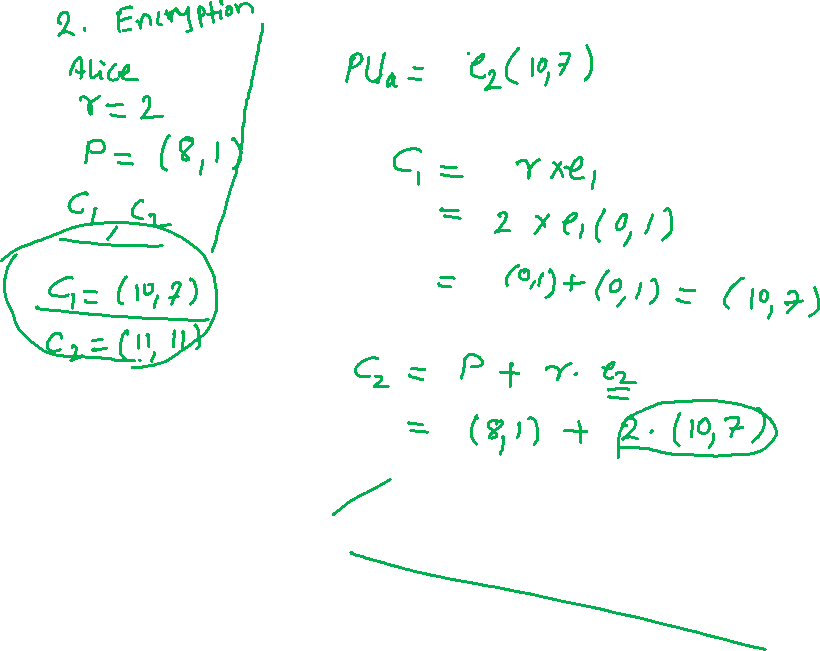 2. Encryption
Alice
r = 2
P = (8,1)
C1, C2
C1 = (10,7)
C2 = (11,11)
PUa = e2(10,7)
C1 = r x e1
= 2 x e1(0,1)
= (0,1) + (0,1) = (10,7)
C2 = P + r. e2
= (8,1) + 2. (10,7)